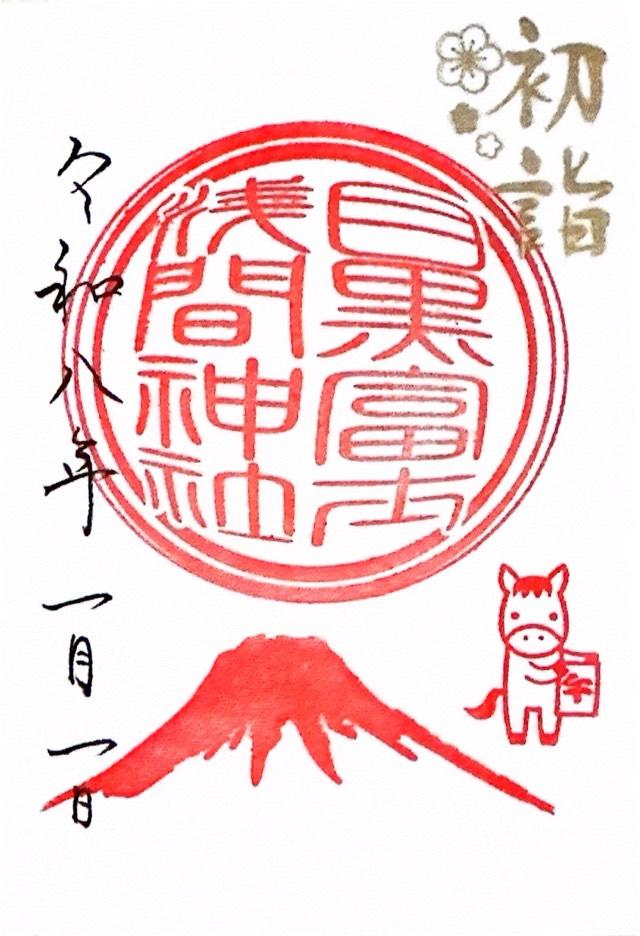 初詣
目黒富士
浅間神社
令和八年一月一日
午